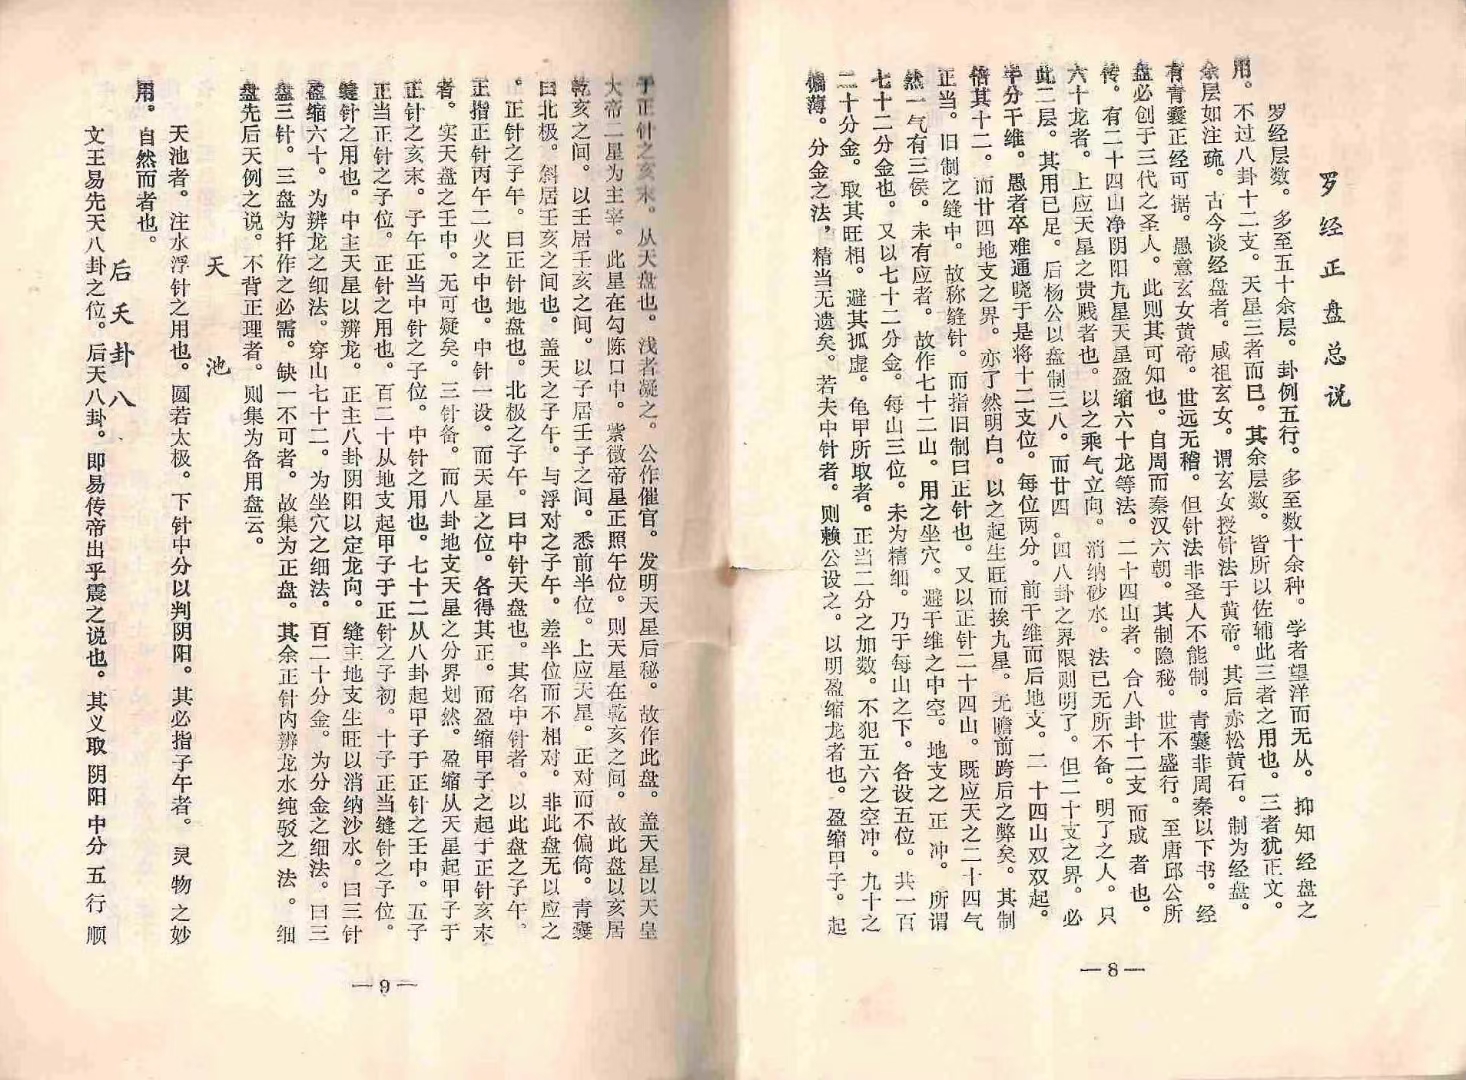 罗经正盘总说
罗经层数。多至五十余层。卦例五行。多至数十余种。学者望洋而无从。抑知经盘之
用。不过八卦十二支。天星三者而巳。其余层数。皆所以佐辅此三者之用也。三者犹正文。
余层如注疏。古今谈经盘者。咸祖玄女。谓玄女授针法于黄帝。其后赤松黄石。制为经盘。
有青囊正经可据。愚意玄女黄帝。世远无稽。但针法非圣人不能制。青囊非周秦以下书。经
盘必创于三代之圣人。此则其可知也。自周而秦汉六朝。其制隐秘。世不盛行。至唐邱公所
传。有二十四山净阴阳九星天星盈缩六十龙等法。二十四山者。合八卦十二支而成者也。
六十龙者。上应天星之贵贱者也。以之乘气立向。消纳砂水。法已无所不备。明了之人。只
此二层。其用已足。后杨公以盘制三八。而廿四.四八卦之界限则明了。但二十支之界。必
半分干维。愚者卒难通晓于是将十二支位。每位两分。前干维而后地支。二十四山双双起。
倍其十二。而廿四地支之界。亦了然明白。以之起生旺而挨九星。无瞻前跨后之弊矣。其制
正当。旧制之缝中。故称缝针。而指旧制曰正针也。又以正针二十四山。既应天之二十四气
然一气有三侯。未有应者。故作七十二山。用之坐穴。避干维之中空。地支之正冲。所谓
七十二分金也。又以七十二分金。每山三位。未为精细。乃于每山之下。各设五位。共一百
二十分金。取其旺相。避其孤虚。龟甲所取者。正当二分之加数。不犯五六之空冲。九十之
偏薄。分金之法，精当无遗矣。若夫中针者。则赖公设之。以明盈缩龙者也。盈缩甲子。起
—8—
于正针之亥末。从天盘也。浅者凝之。公作催官。发明天星后秘。故作此盘。盖天星以天皇
大帝一星为主宰。此星在勾陈口中。紫微帝星正照午位。则天星在乾亥之间。故此盘以亥居
乾亥之间。以壬居壬亥之间。以子居壬子之间。悉前半位。上应天星。正对而不偏倚。青囊
曰北极。斜居壬亥之间也。盖天之子午。与浮对之子午。差半位而不相对。非此盘无以应之
。正针之子午。曰正针地盘也。北极之子午。曰中针天盘也。其名中针者。以此盘之子午。
正指正针丙午二火之中也。中针一设。而天星之位。各得其正。而盈缩甲子之起于正针亥末
者。实天盘之壬中。无可疑矣。三针备。而八卦地支天星之分界划然。盈缩从天星起甲子于
正针之亥末。子午正当中针之子位。中针之用也。七十二从八卦起甲子于正针之壬中。五子
正当正针之子位。正针之用也。百二十从地支起甲子于正针之子初。十子正当缝针之子位。
缝针之用也。中主天星以辨龙。正主八卦阴阳以定龙向。缝主地支生旺以消纳沙水。曰三针
盈缩六十。为辨龙之细法。穿山七十二。为坐穴之细法。百二十分金。为分金之细法。曰三
盘三针。三盘为扦作之必需。缺一不可者。故集为正盘。其余正针内辨龙水纯驳之法。细
盘先后天例之说。不背正理者。则集为备用盘云。
天池
天池者。注水浮针之用也。圆若太极。下针中分以判阴阳。其必指子午者。灵物之妙
用。自然而者也。
后天卦八
文王易先天八卦之位。后天八卦。即易传帝出乎震之说也。其义取阴阳中分五行顺
—9—